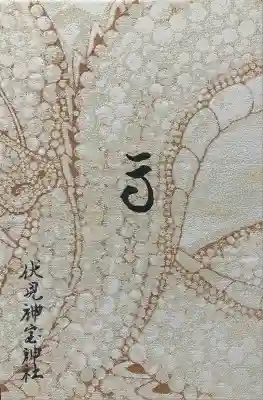 伏見神宝神社